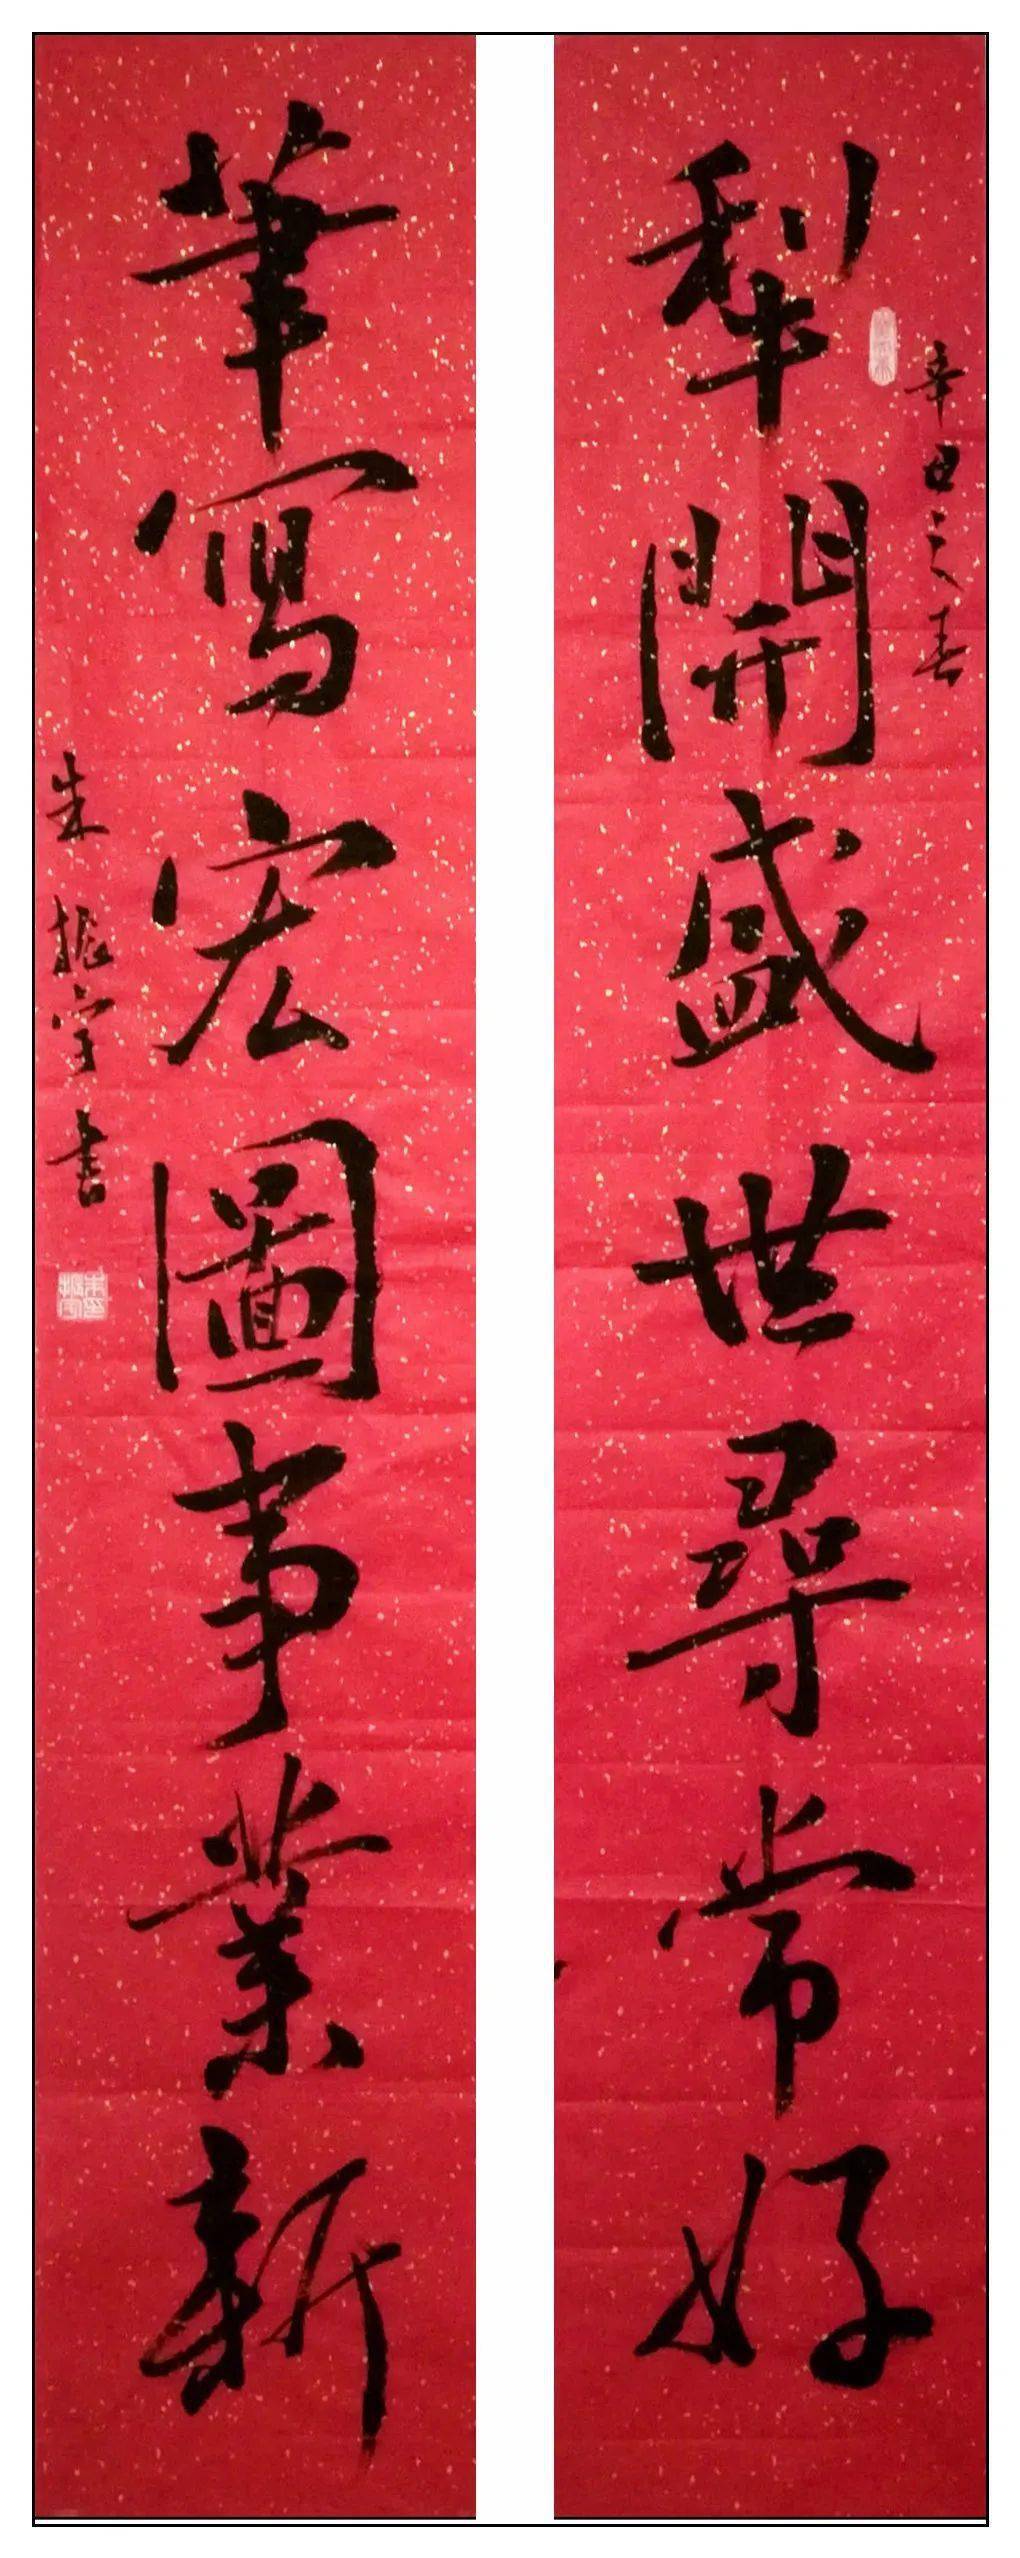 辛丑之春
犁開盛世尋常好
筆寫宏圖事業新
朱振宇書